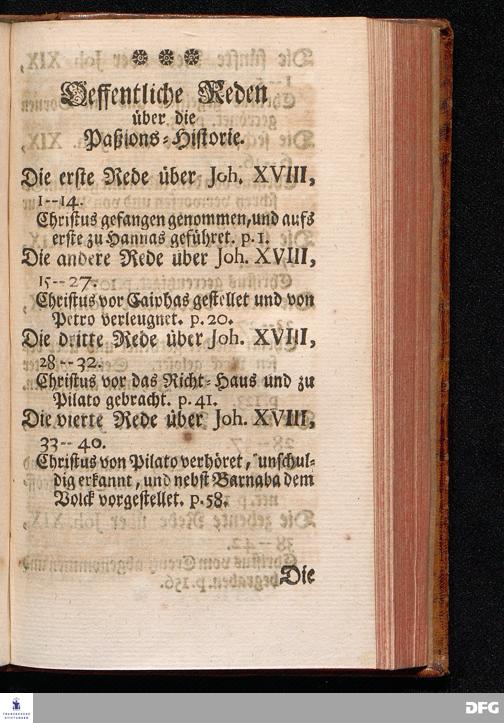 Oeffentliche Reden
über die
Paßions-Historie.
Die erste Rede über Joh. XVIII,
1--14.
Christus gefangen genommen, und aufs
erste zu Hannas geführet. p. 1.
Die andere Rede über Joh. XVIII,
15--27.
Christus vor Caiphas gestellet und von
Petro verleugnet. p. 20.
Die dritte Rede über Joh. XVIII,
28--32.
Christus vor das Richt-Haus und zu
Pilato gebracht. p. 41.
Die vierte Rede über Joh. XVIII,
33--40.
Christus von Pilato verhöret, unschul-
dig erkannt, und nebst Barnaba dem
Volck vorgestellet. p. 58.
Die
FRANCKESCHE
STIFTUNGEN
DFG